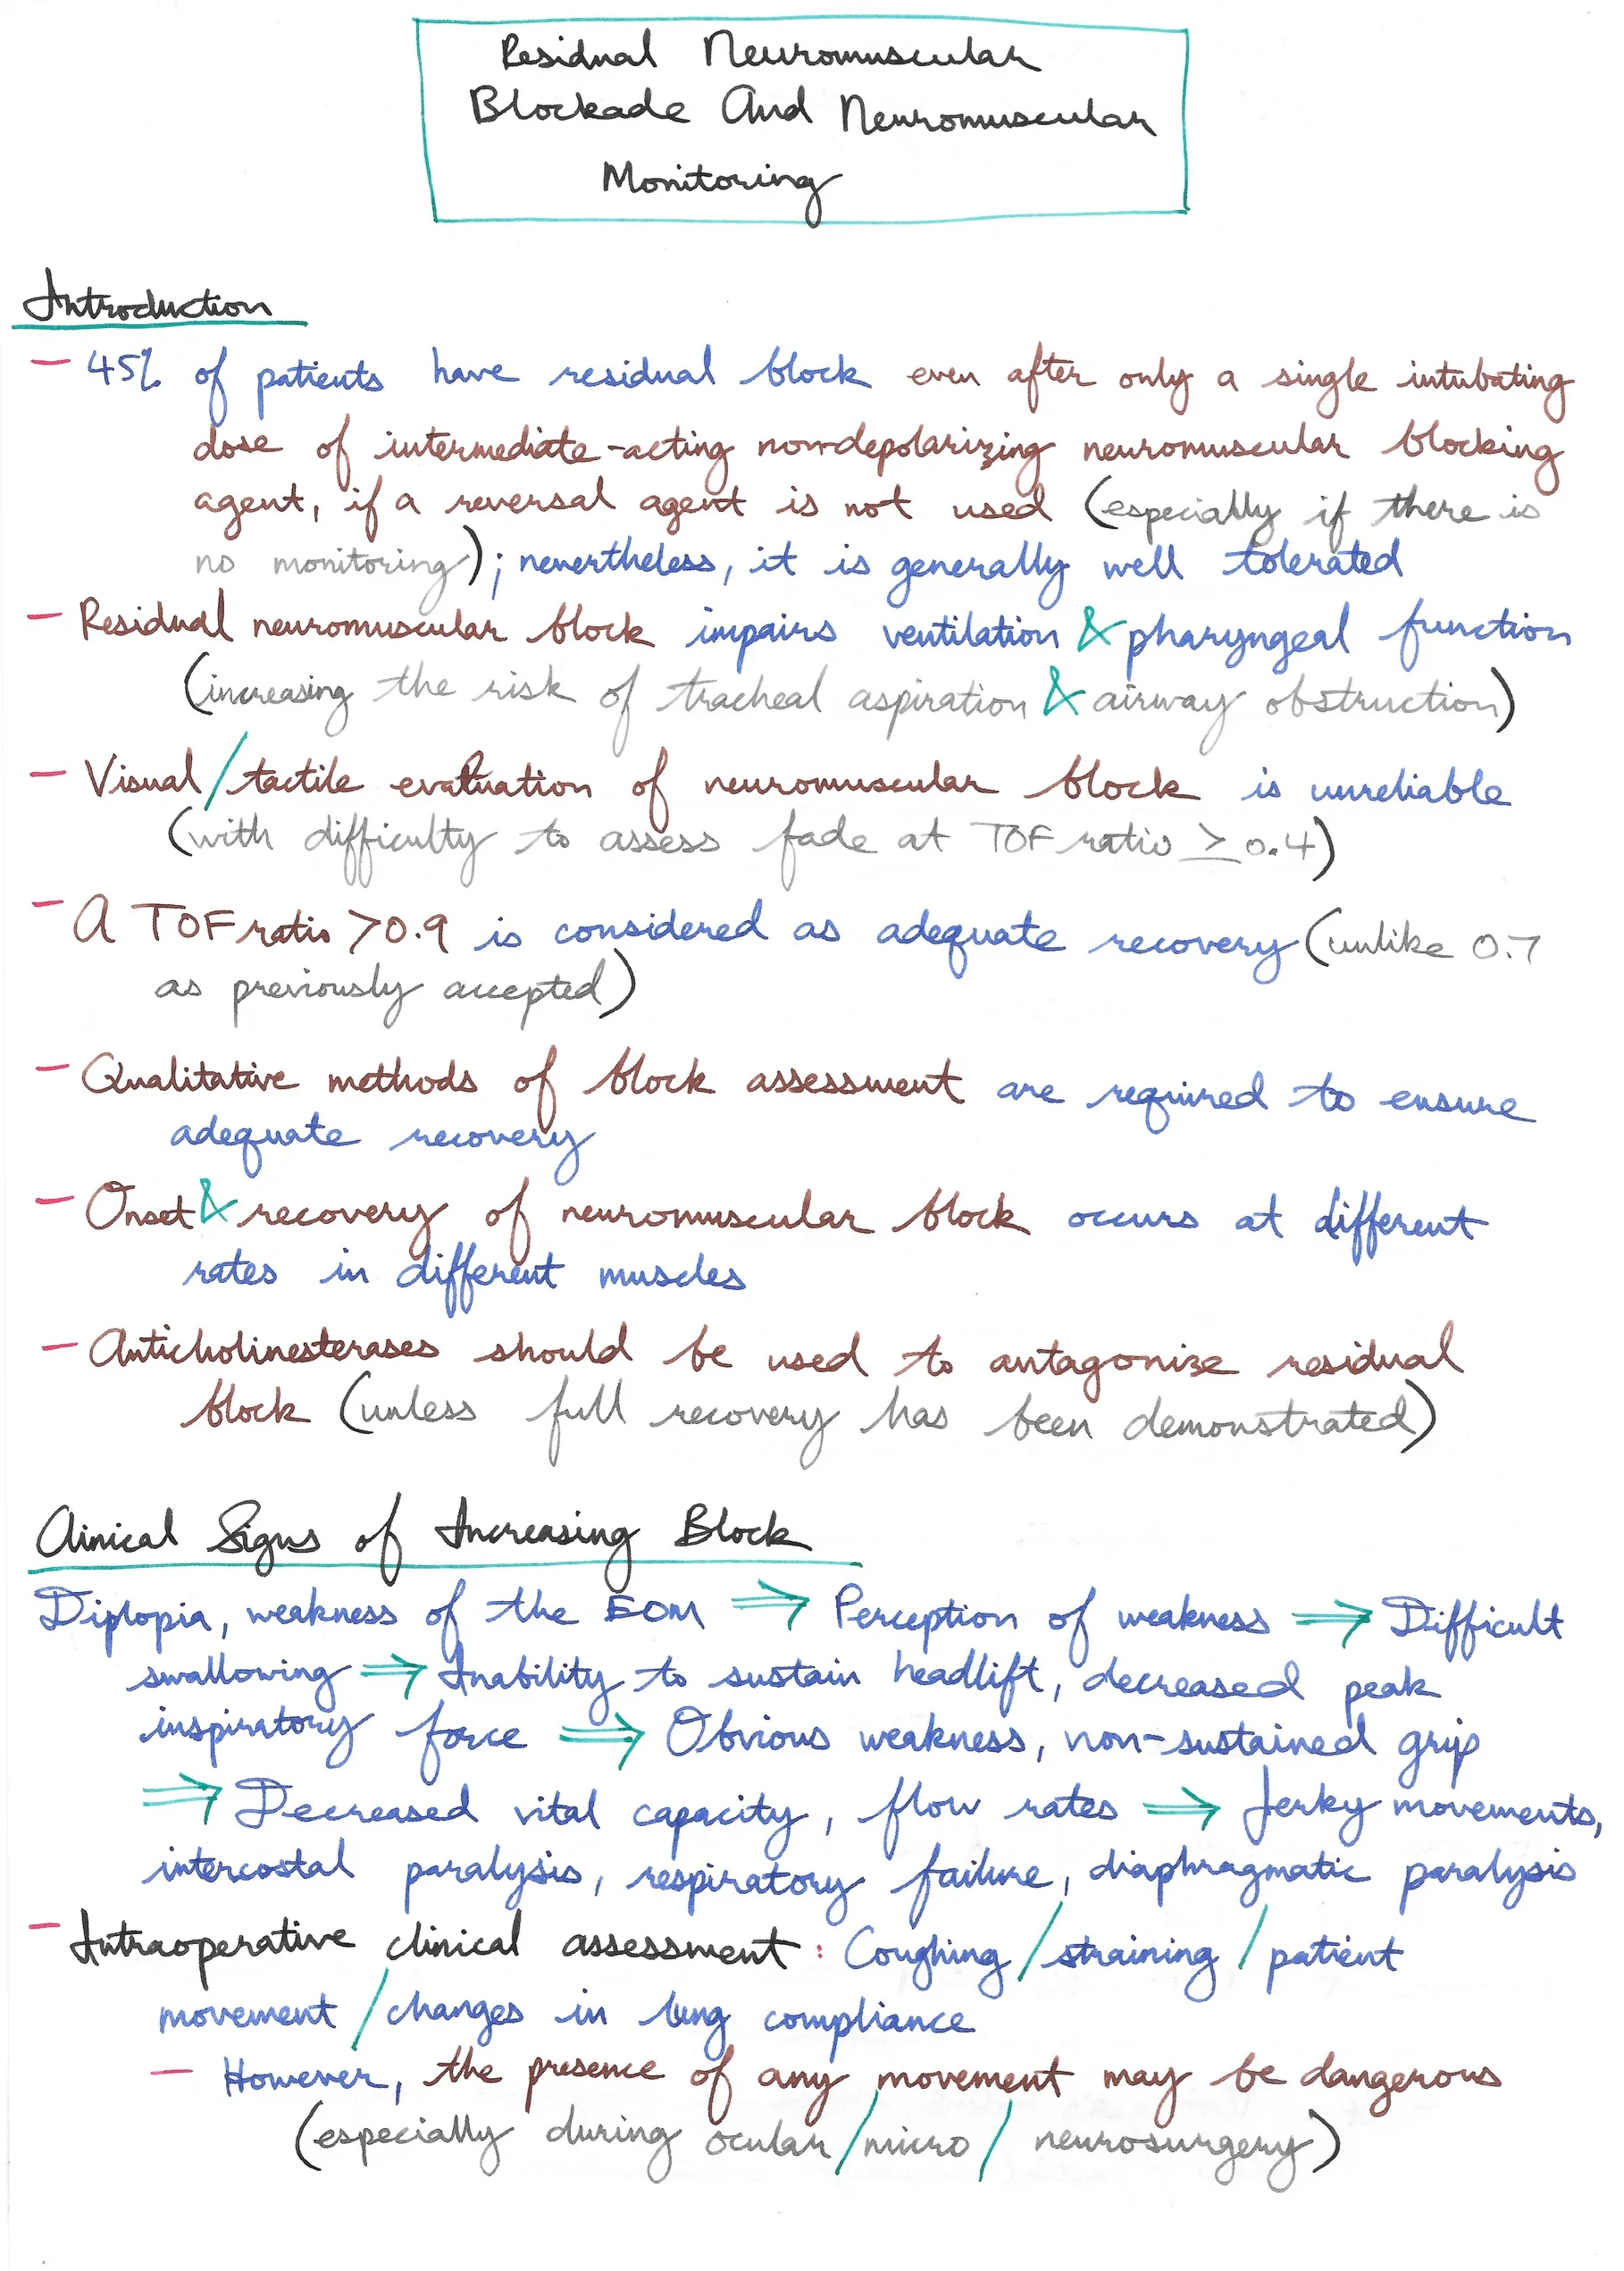 Residual Neuromuscular
Blockade And Neuromuscular
Monitoring
Introduction
- 45% of patients have residual block even after only a single intubating
dose of intermediate-acting non-depolarizing neuromuscular blocking
agent, if a reversal agent is not used (especially if there is
no monitoring); nevertheless, it is generally well tolerated
- Residual neuromuscular block impairs ventilation & pharyngeal function
(increasing the risk of tracheal aspiration & airway obstruction)
- Visual/tactile evaluation of neuromuscular block is unreliable
(with difficulty to assess fade at TOF ratio ≥ 0.4)
- A TOF ratio >0.9 is considered as adequate recovery (unlike 0.7
as previously accepted)
- Qualitative methods of block assessment are required to ensure
adequate recovery
- Onset & recovery of neuromuscular block occurs at different
rates in different muscles
- Anticholinesterases should be used to antagonize residual
block (unless full recovery has been demonstrated)
Clinical Signs of Increasing Block
Diplopia, weakness of the EOM ⇒ Perception of weakness ⇒ Difficult
swallowing ⇒ Inability to sustain headlift, decreased peak
inspiratory force ⇒ Obvious weakness, non-sustained grip
⇒ Decreased vital capacity, flow rates ⇒ Jerky movements,
intercostal paralysis, respiratory failure, diaphragmatic paralysis
- Intraoperative clinical assessment: Coughing/straining/patient
movement/changes in lung compliance
- However, the presence of any movement may be dangerous
(especially during ocular/micro/neurosurgery)